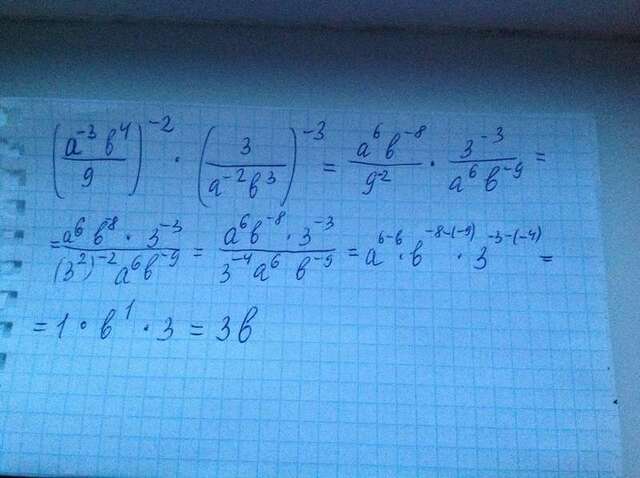 (a⁻³ b⁴ / 9)⁻² · (3 / a⁻² b³)⁻³ = a⁶ b⁻⁸ / 9⁻² · 3⁻³ / a⁶ b⁻⁹ =
= a⁶ b⁻⁸ · 3⁻³ / (3²)⁻² a⁶ b⁻⁹ = a⁶ b⁻⁸ · 3⁻³ / 3⁻⁴ a⁶ b⁻⁹ = a⁶⁻⁶ · b⁻⁸⁻⁽⁻⁹⁾ · 3⁻³⁻⁽⁻⁴⁾ =
= 1 · b¹ · 3 = 3b